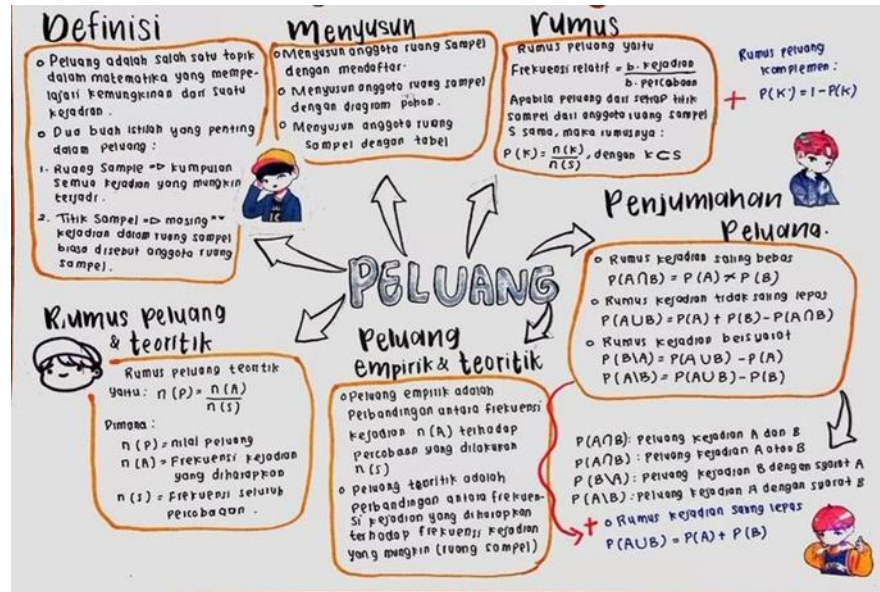 Definisi
o Peluang adalah salah satu topik
dalam matematika yang mempe-
lajari kemungkinan dari suatu
kejadian.
o Dua buah istilah yang penting
dalam peluang :
1. Ruang Sample => kumpulan
semua kejadian yang mungkin
terjadi.
2. Titik Sampel => masing""
kejadian dalam ruang sampel
biasa disebut anggota ruang
sampel.
Menyusun
o Menyusun anggota ruang sampel
dengan mendaftar.
o Menyusun anggota ruang sampel
dengan diagram pohon.
o Menyusun anggota ruang
sampel dengan tabel
rumus
Rumus peluang yaitu
Frekuensi relatif = b. kejadian
b. percobaan
Apabila peluang dari setiap titik
sampel dari anggota ruang sampel
S sama, maka rumusnya :
P(K) = n(K)/n(S), dengan K⊂S
+
Rumus peluang
komplemen :
P(K') = 1 - P(K)
PELUANG
Penjumlahan
Peluang.
o Rumus kejadian saling bebas
P(A∩B) = P(A) × P(B)
o Rumus kejadian tidak saling lepas
P(A∪B) = P(A) + P(B) - P(A∩B)
o Rumus kejadian bersyarat
P(B\A) = P(A∪B) - P(A)
P(A\B) = P(A∪B) - P(B)
P(A∩B) : Peluang kejadian A dan B
P(A∩B) : Peluang kejadian A atau B
P(B\A) : Peluang kejadian B dengan syarat A
P(A\B) : Peluang kejadian A dengan syarat B
+ o Rumus kejadian saling lepas
P(A∪B) = P(A) + P(B)
Rumus peluang
& teoritik
Rumus peluang teoritik
yaitu : n(P) = n(A)/n(S)
Dimana :
n(P) = nilai peluang
n(A) = Frekuensi kejadian
yang diharapkan
n(S) = Frekuensi seluruh
percobaan.
Peluang
empirik & teoritik
o Peluang empirik adalah
Perbandingan antara frekuensi
kejadian n(A) terhadap
percobaan yang dilakukan
n(S)
o Peluang teoritik adalah
perbandingan antara frekuen-
si kejadian yang diharapkan
terhadap frekuensi kejadian
yang mungkin (ruang sampel)